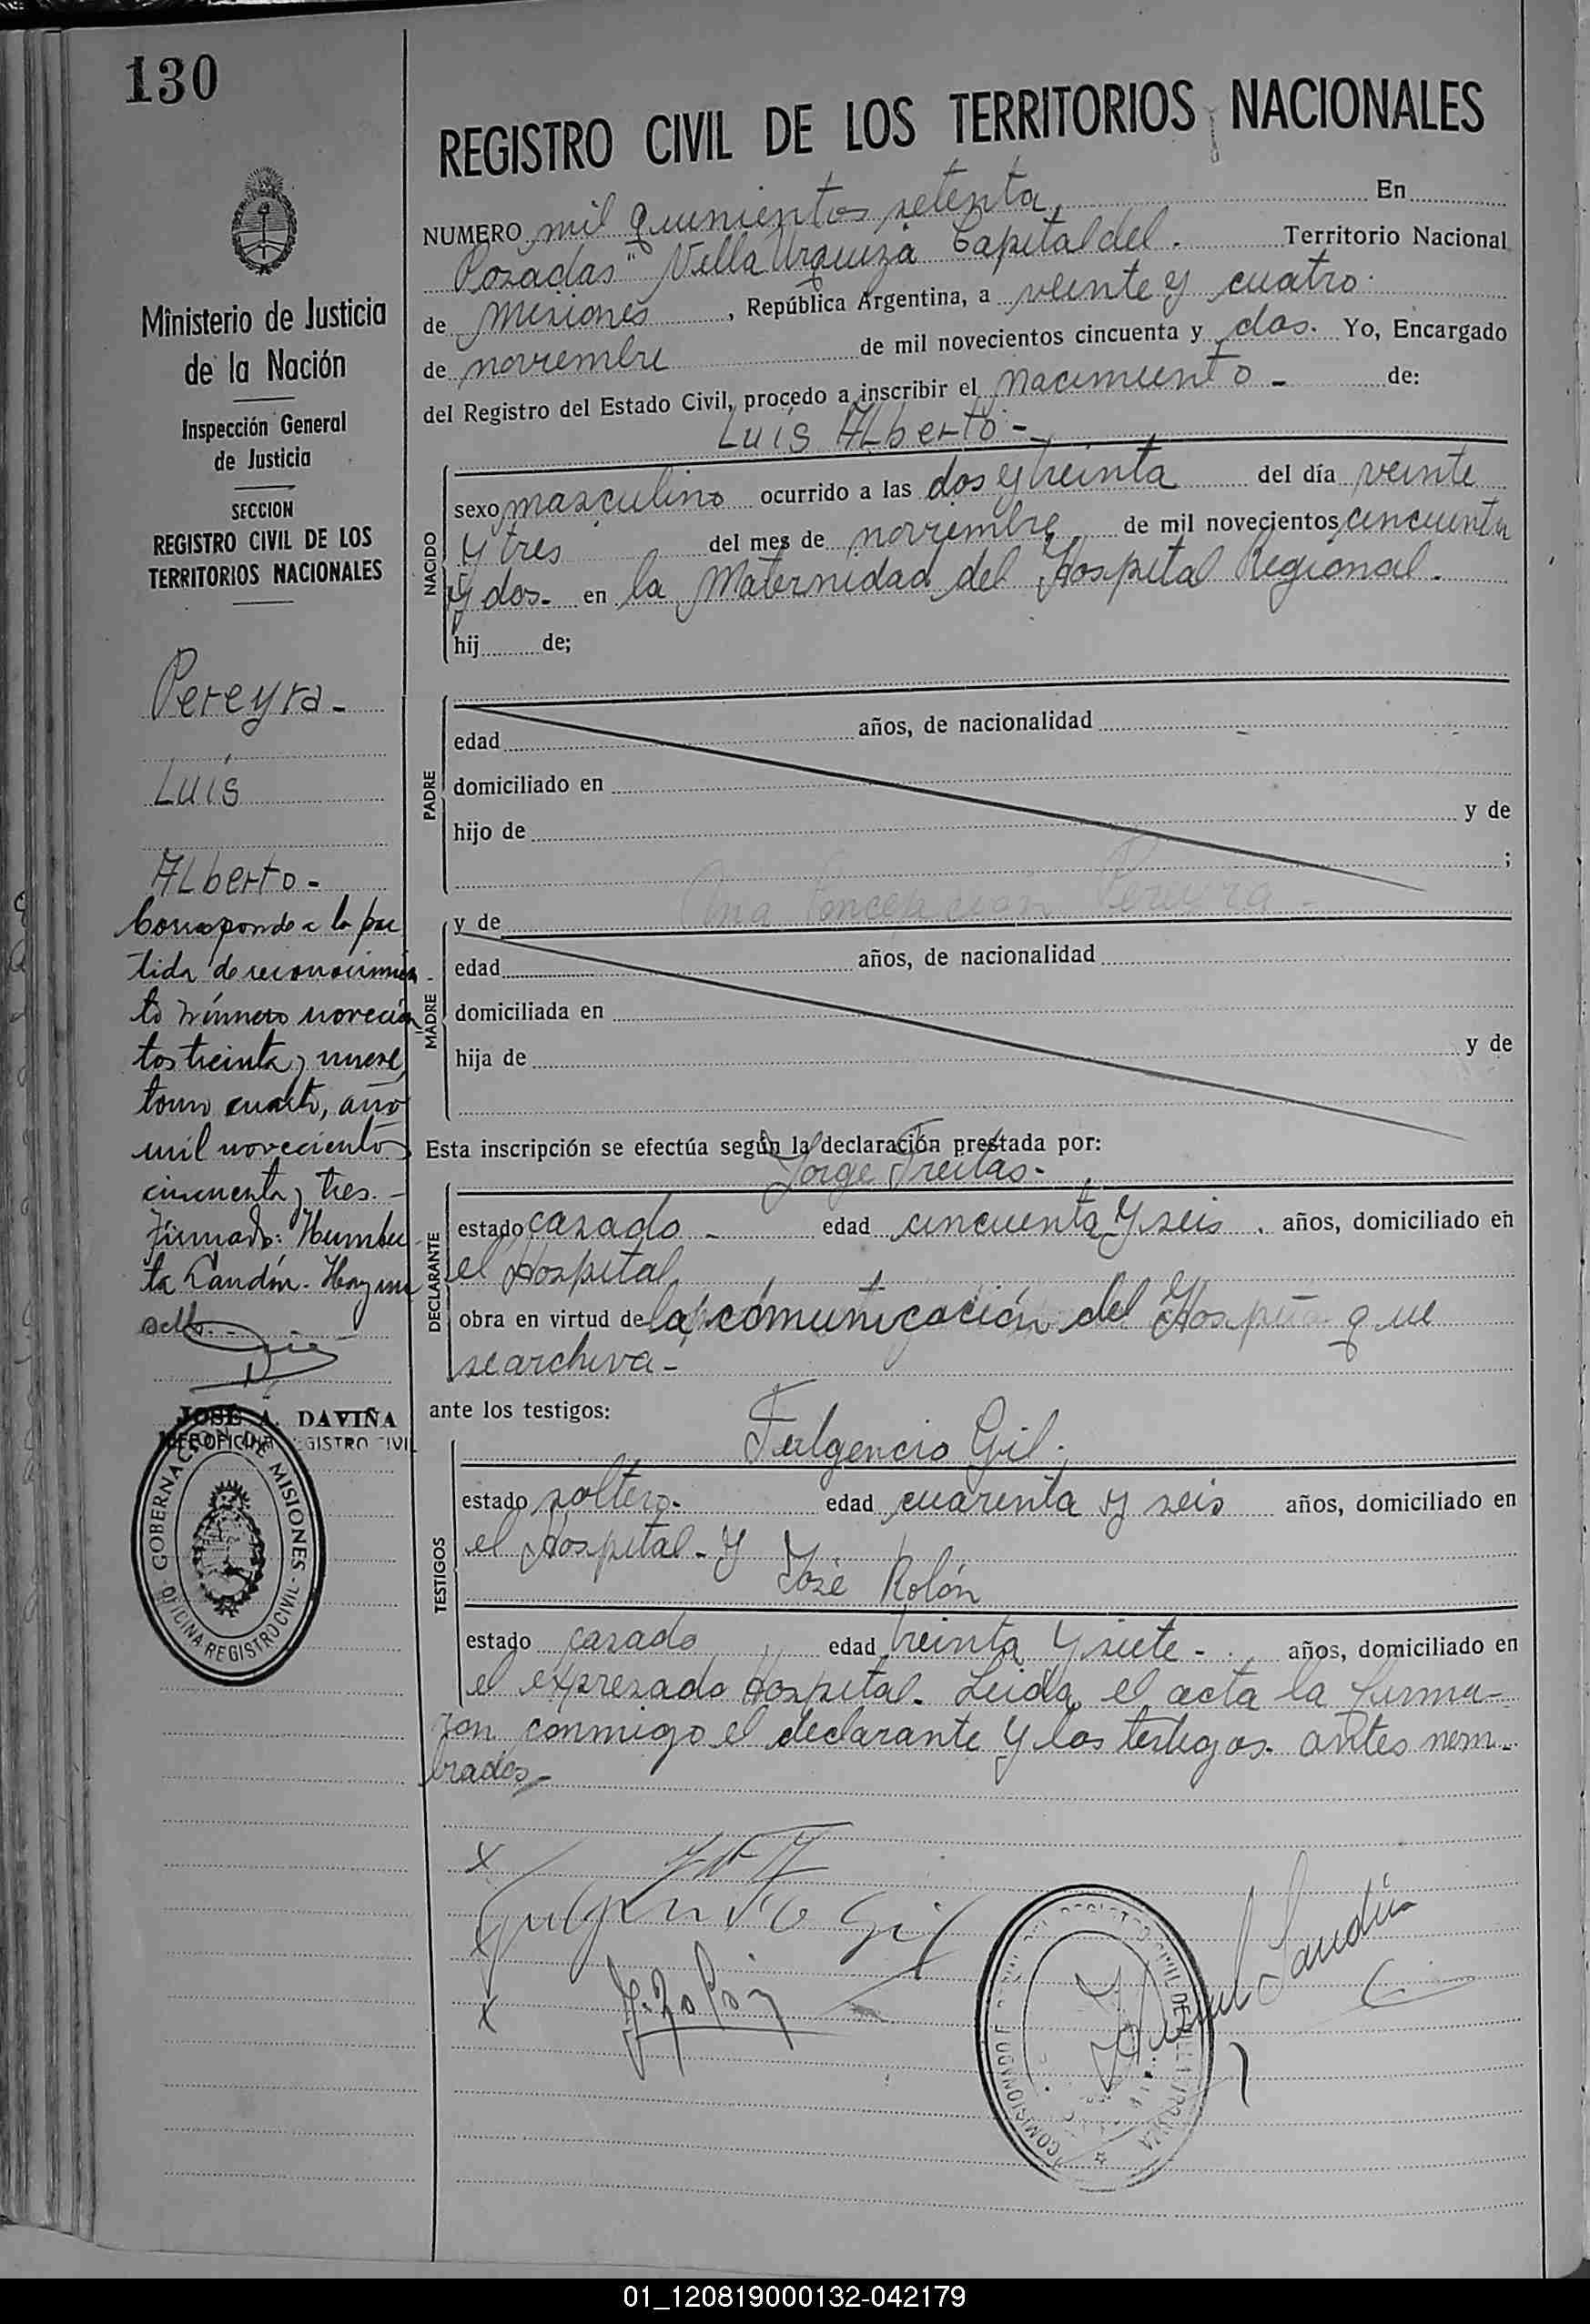 130
REGISTRO CIVIL DE LOS TERRITORIOS NACIONALES
NUMERO mil quinientos setenta En
Posadas "Villa Urquiza Capital del. Territorio Nacional
de Misiones, República Argentina, a veinte y cuatro.
de noviembre de mil novecientos cincuenta y dos. Yo, Encargado
del Registro del Estado Civil, procedo a inscribir el nacimiento - de:
Luis Alberto -
NACIDO
sexo masculino ocurrido a las dos y treinta del día veinte
y tres del mes de noviembre de mil novecientos cincuenta
y dos. en la Maternidad del Hospital Regional.
hij de;
PADRE
edad años, de nacionalidad
domiciliado en
hijo de y de
;
MADRE
y de Ana Concepción Pereyra -
edad años, de nacionalidad
domiciliada en
hija de y de
Esta inscripción se efectúa según la declaración prestada por:
Jorge Freitas.
DECLARANTE
estado casado - edad cincuenta y seis. años, domiciliado en
el Hospital
obra en virtud de la comunicación del que
se archiva -
ante los testigos:
Fulgencio Gil.
TESTIGOS
estado soltero. edad cuarenta y seis años, domiciliado en
el Hospital - y
José Rolón
estado casado edad treinta y siete - años, domiciliado en
el expresado Hospital. Leida el acta la firma-
ron conmigo el declarante y los testigos antes nom-
brados -
X
Fulgencio Gil
X
X J. Rolón
Landín
Ministerio de Justicia
de la Nación
Inspección General
de Justicia
SECCION
REGISTRO CIVIL DE LOS
TERRITORIOS NACIONALES
Pereyra -
Luis
Alberto -
Corresponde a la par
tida de reconocimien
to número novecien
tos treinta y nueve
tomo cuarto, año
mil novecientos
cincuenta y tres. -
Firmado: Humber
to Landín. Hay un
sello. -
JOSÉ A. DAVIÑA
JEFE OFICINA REGISTRO CIVIL
GOBERNACION DE MISIONES
OFICINA REGISTRO CIVIL
01_120819000132-042179